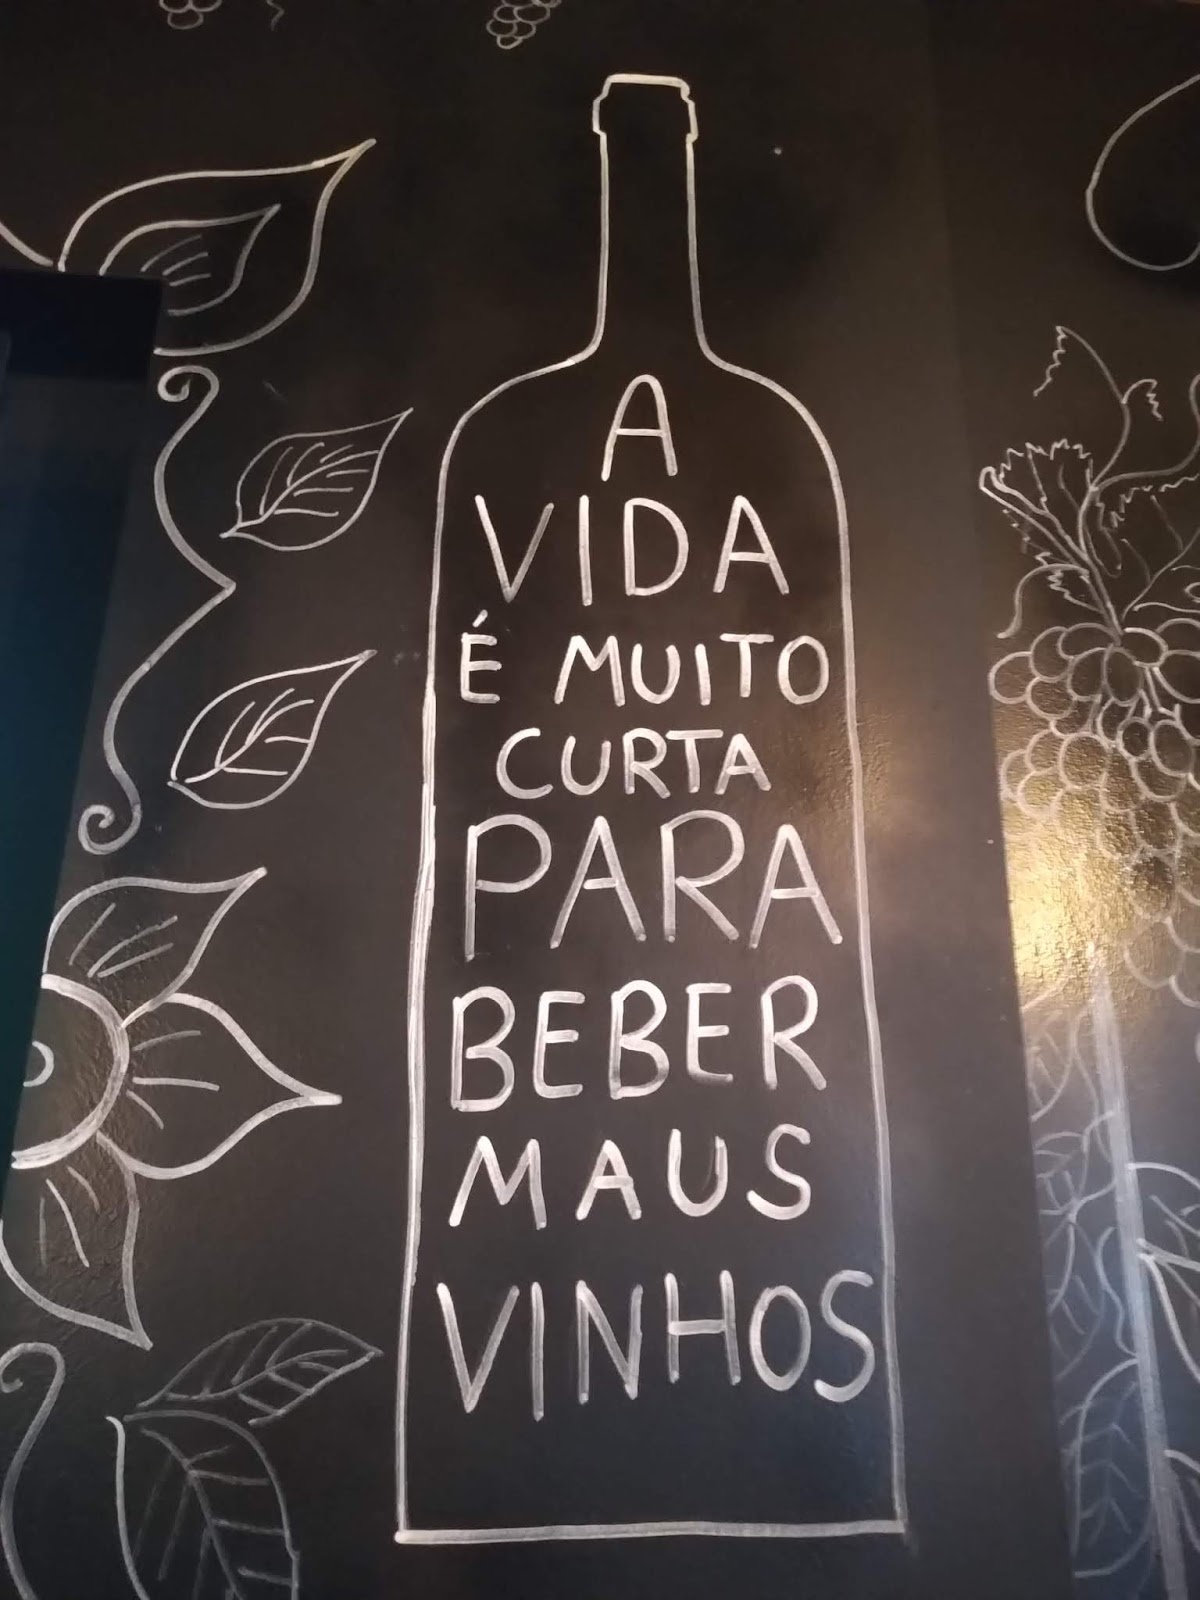 A
VIDA
É MUITO
CURTA
PARA
BEBER
MAUS
VINHOS